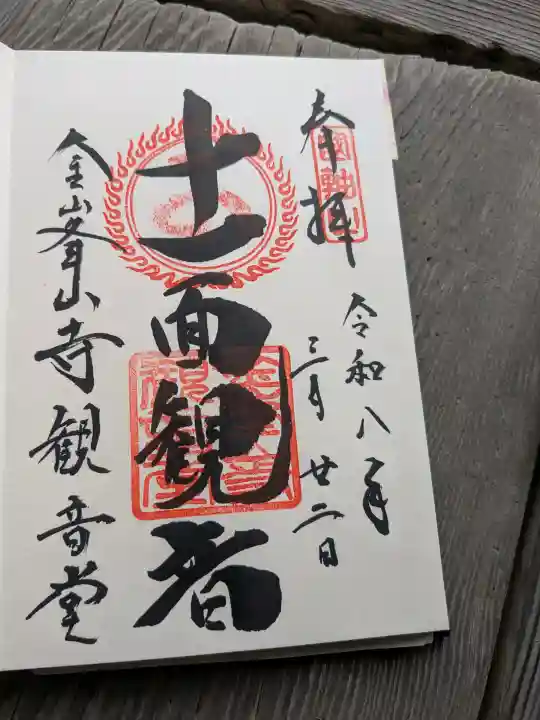 奉拝
令和八年
三月廿二日
十一面観音
金峯山寺観音堂